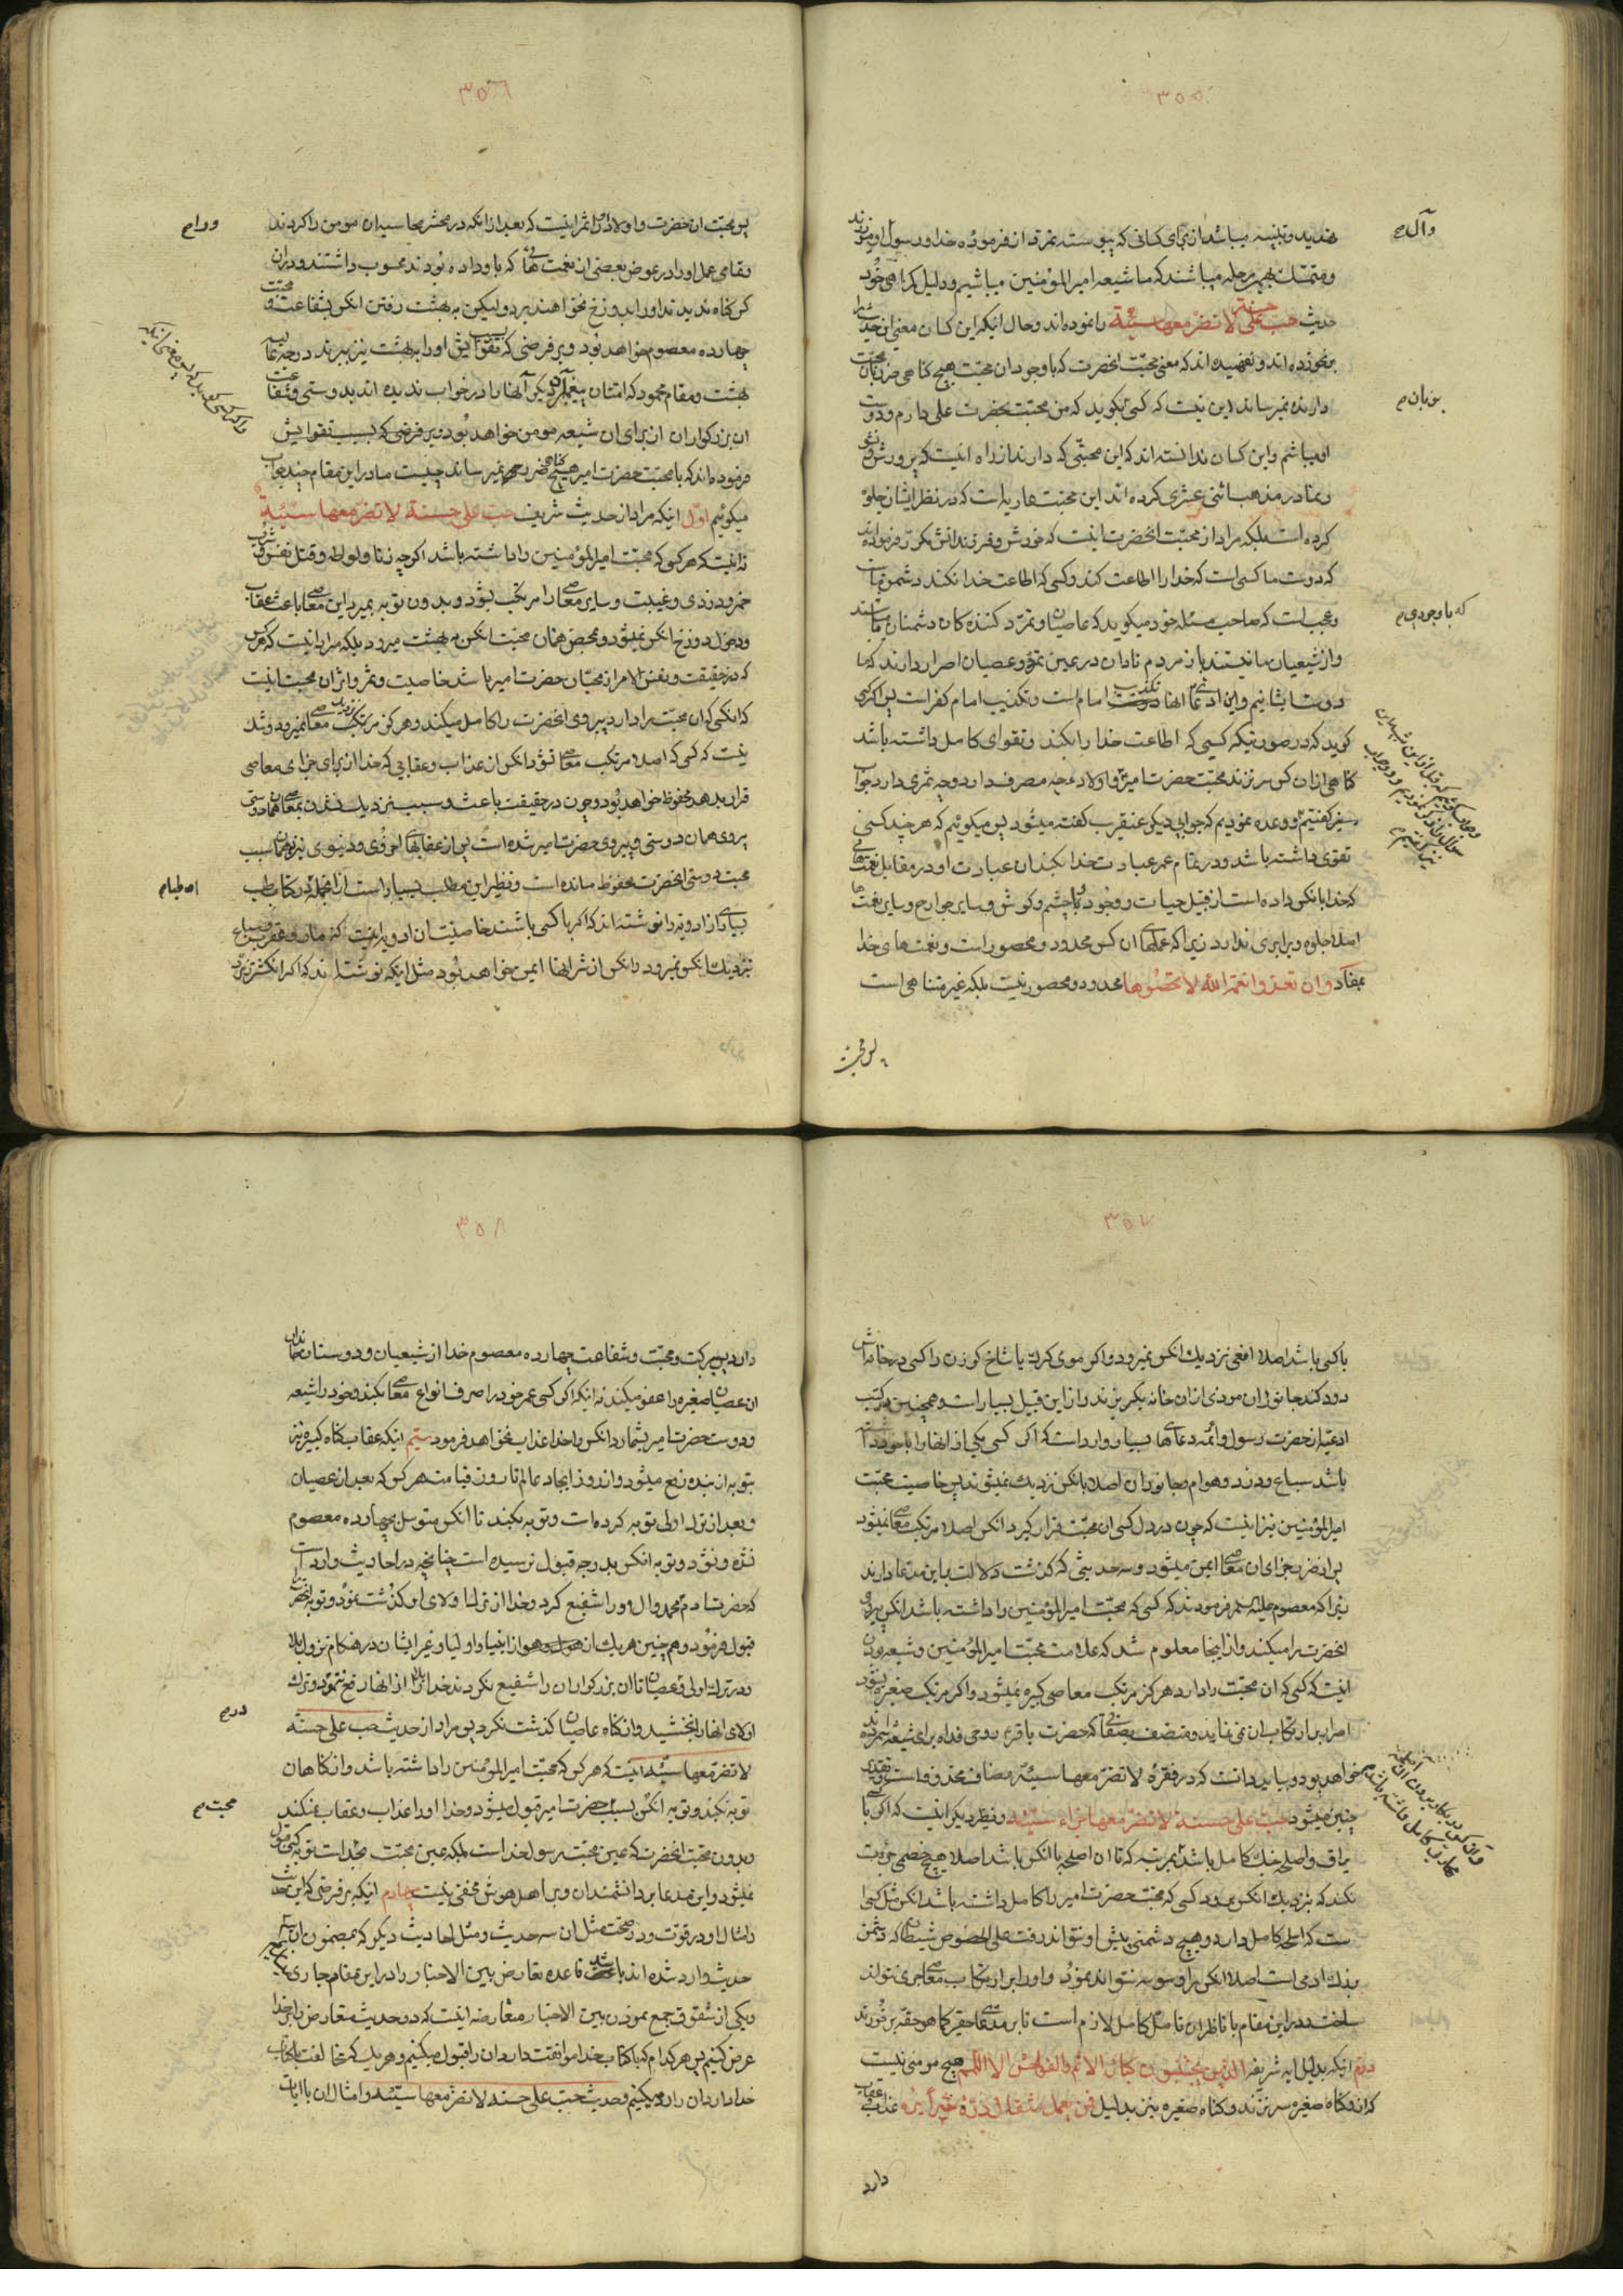 ۳۵۵
تهدید و تنبیه میباشد از برای کسانی که پیوسته تمرد از فرموده خدا و رسول او میورزند
و آل
و متمسک بهمین مرحله میباشند که ما شیعه امیرالمؤمنین میباشیم و دلیل گمراهی خود
حدیث حب علی حسنة لا تضر معها سیئة را نموده اند و حال آنکه این کسان معنی این حدیث را
برنخورده اند و نفهمیده اند که معنی محبت آنحضرت که با وجود آن محبت هیچ گناهی ضرر بآن محبت
دارنده نمیرساند این نیست که کسی بگوید که من محبت بحضرت علی دارم و دوست
بوبان
او میباشم و این کسان ندانسته اند که این محبتی که دارند از راه اینست که پرورش و نشو
و نما در مذهب اثنی عشری کرده اند این محبتها ریه است که در نظر ایشان جلوه
کرده است بلکه مراد از محبت آنحضرت اینست که خودش و فرزندانش مکرر فرموده اند
که دوست ما کسی است که خدا را اطاعت کند و کسی که اطاعت خدا نکند دشمن ماست
و عجب است که صاحب مسئله خود میگوید که عاصیان و تمرد کننده کان دشمنان ما میباشند
که با وجودی
و از شیعیان ما نیستند باز مردم نادان در عین تمرد و عصیان اصرار دارند که ما
دوست ایشانیم و این ادعای آنها تکذیب امام است و تکذیب امام کفر است پس اگر کسی
گوید که در صورتیکه کسی که اطاعت خدا را بکند و تقوای کامل داشته باشد
گناهی از آن کس سر نزند محبت حضرت امیر و اولاد چه مصرف دارد و چه ثمری دارد جواب
پیش گفتیم و وعده نمودیم که جوابی دیگر عنقریب گفته میشود پس میگوئیم که هر چند کسی
تقوی داشته باشد و در تمام عمر عبادت خدا بکند آن عبادت او در مقابل نعمتهائی
که خدا بانکس داده است از قبیل حیات و وجود و چشم و گوش و سایر جوارح و سایر نعمتها
اصلا جلوه و برابری ندارد زیرا که عملهای آن کس محدود و محصور است و نعمتهای خدا
بمفاد و ان تعدوا نعمة الله لا تحصوها محدود و محصور نیست بلکه غیر متناهی است
پس محبت
۳۵۶
پس محبت آنحضرت و اولاد او را ثمر اینست که بعد از آنکه در محشر محاسبه آن مومن را کردند
و تمامی عمل او را در عوض بعضی از نعمتهائی که باو داده بودند محسوب داشتند و در آن
کس گناه ندیدند او را بدوزخ نخواهند برد و لیکن به بهشت رفتن آنکس بشفاعت و محبت
چهارده معصوم خواهد بود و بر فرضی که بسبب تقوایش او را به بهشت نیز ببرند درجه عالیه
بهشت و مقام محمود که امتان پیغمبران دیگر آنها را در خواب ندیده اند بدوستی و شفاعت
آن بزرگواران از برای آن شیعه مومن خواهد بود و بر فرضی که بسبب تقوایش
فرموده اند که با محبت حضرت امیر هیچ گناهی ضرر نمیرساند چیست ما در این مقام چند جواب
میگوئیم اول اینکه مراد از حدیث شریف حب علی حسنة لا تضر معها سیئة
نه اینست که هر کسی که محبت امیرالمؤمنین را داشته باشد اگر چه زنا و لواطه و قتل نفس و شرب
خمر و دزدی و غیبت و سایر معاصی را مرتکب بشود و بدون توبه بمیرد این معاصی باعث عقاب
و دخول دوزخ آنکس نمیشود و محض همان محبت آنکس به بهشت میرود بلکه مراد اینست که هر کس
که در حقیقت و نفس الامر از محبان حضرت امیر باشد خاصیت و ثمر و اثر آن محبت اینست
که آنکس که آن محبت را دارد پیروی آنحضرت را کامل میکند و هرگز مرتکب معاصی نمیرود و شک
نیست که کسی که اصلا مرتکب معاصی نشود آنکس از عذاب و عقابی که خدا از برای جزای معاصی
قرار بدهد محفوظ خواهد بود و چون در حقیقت باعث و سبب نزدیک نشدن بمعاصی همان دوستی
پیروی همان دوستی و پیروی حضرت امیر شده است پس از عقابهای اخروی و دنیوی نیز بهمان سبب
محبت دوستی آنحضرت محفوظ مانده است و نظیر این مطلب بسیار است از آنجمله در کتاب طب
بسیاری از ادویه را نوشته اند که اگر با کسی باشند خاصیت آن ادویه اینست که مار و عقرب و سباع
نزدیک آنکس نمیرود و آنکس از شر آنها ایمن خواهد بود مثل اینکه نوشته اند که اگر انگشتر زمرد
۳۵۷
با کسی باشد اصلا افعی نزدیک آنکس نمیرود و اگر موی گرگ یا شاخ گوزن را کسی در خانه اش
دود کند جانوران موذی از آن خانه بگریزند و از این قبیل بسیار است و همچنین در کتب
ادعیه از حضرت رسول و ائمه دعاهای بسیار وارد است که اگر کسی یکی از آنها را با خود داشته
باشد سباع و درد و هوام و جانوران اصلا بانکس نزدیک نمیشوند پس خاصیت محبت
امیرالمؤمنین نیز اینست که چون در دل کسی آن محبت قرار گیرد آنکس اصلا مرتکب معاصی نمیشود
پس از ضرر جزای آن معاصی ایمن میشود و سه حدیثی که گذشت دلالت باین مدعا دارند
زیرا که معصوم علیه السلام فرمودند که کسی که محبت امیرالمؤمنین را داشته باشد آنکس پیروی
آنحضرت را میکند و از اینجا معلوم شد که علامت محبت امیرالمؤمنین و شیعه بودن
اینست که کسی که آن محبت را دارد هرگز مرتکب معاصی کبیره نمیشود و اگر مرتکب صغیره بشود
اصرار بر ارتکاب آن نمی نماید و متصف بصفاتی که حضرت باقر روحی فداه برای شیعه شمرده اند
خواهد بود و باید دانست که در فقره لا تضر معها سیئة مضاف محذوف است و تقدیر
چنین میشود حب علی حسنة لا تضر معها جزاء سیئة و نظیر دیگر اینست که اگر کسی با
یراق و اسلحه جنگ کامل باشد بمرتبه که تا آن اسلحه با آنکس باشد اصلا هیچ خصمی جرئت
نکند که نزدیک آنکس برود کسی که محبت حضرت امیر را کامل داشته باشد آنکس مثل کسی
ست که اسلحه کامل دارد و هیچ دشمنی پیش او نتواند رفت علی الخصوص شیطان که دشمن
بزرگ آدمی است اصلا آنکس را وسوسه نتواند نمود و او را بر ارتکاب معاصی جری نتواند
ساخت و در این مقام با ناظران تامل کامل لازم است تا بر مدعای حقیر کما هو حقه برخورند
دوم اینکه بدلیل آیه شریفه الذین یجتنبون کبائر الاثم والفواحش الا اللمم هیچ مومنی نیست
که از و گناه صغیره سر نزند و گناه صغیره نیز بدلیل فمن یعمل مثقال ذرة شراً یره عذاب و عقاب
دارد
۳۵۸
دارد پس ببرکت و محبت و شفاعت چهارده معصوم خدا از شیعیان و دوستان خاندان
آن عصیان صغیره را عفو میکند نه اینکه اگر کسی عمر خود را صرف انواع معاصی بکند و خود را شیعه
و دوست حضرت امیر بشمارد آنکس را خدا عذاب نخواهد فرمود سیم اینکه عقاب گناه کبیره نیز
بتوبه از بنده رفع میشود و از روز ایجاد عالم تا روز قیامت هر کس که بعد از عصیان
و بعد از ترک اولی توبه کرده است و توبه بکند تا آنکس متوسل بچهارده معصوم
نشده و نشود توبه آنکس بدرجه قبول نرسیده است چنانچه در احادیث وارد است
که حضرت آدم محمد و آل او را شفیع کرد و خدا از ترک اولای او گذشت نمود و توبه آنحضرت را
قبول فرمود و همچنین هر یک از انبیا و اولیا و غیر ایشان در هنگام نزول بلا
و در ترک اولی و عصیان تا آن بزرگواران را شفیع نکردند خدا بلا از آنها رفع ننمود و ترک
در
اولای آنها را نبخشید و از گناه عاصیان گذشت نکرد پس مراد از حدیث حب علی حسنة
لا تضر معها سیئة اینست که هر کس که محبت امیرالمؤمنین را داشته باشد و از گناهان
توبه بکند و توبه آنکس بسبب حضرت امیر قبول میشود و خدا او را عذاب و عقاب نمیکند
محبت
و بدون محبت آنحضرت که عین محبت رسول خدا است بلکه عین محبت خداست توبه کسی قبول
نمیشود و این مدعا بر دانشمندان و بر اهل هوش مخفی نیست چهارم اینکه بر فرضی که این حدیث
و امثال او در قوت و در صحت مثل آن سه حدیث و مثل احادیث دیگر که بمضمون آن سه
حدیث وارد شده اند باشد قاعده تعارض بین الاخبار را در این مقام جاری
و یکی از شقوق جمع نمودن بین الاخبار متعارضه اینست که دو حدیث متعارض را بر کتاب خدا
عرض کنیم پس هر کدام که با کتاب خدا موافقت دارد آن را قبول میکنیم و هر یک که مخالفت با کتاب
خدا دارد آن را رد میکنیم و حدیث حب علی حسنة لا تضر معها سیئة و امثال آن با آیات